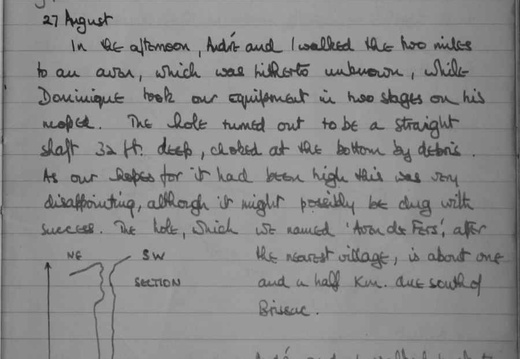 27 August
In the afternoon, André and I walked the two miles
to an aven, which was hitherto unknown, while
Dominique took our equipment in two stages on his
moped. The hole turned out to be a straight
shaft 32 ft. deep, choked at the bottom by debris.
As our hopes for it had been high this was very
disappointing, although it might possibly be dug with
success. The hole, which we named 'Aven de Fers', after
the nearest village, is about one
and a half Km. due south of
Brissac.
NE SW
SECTION